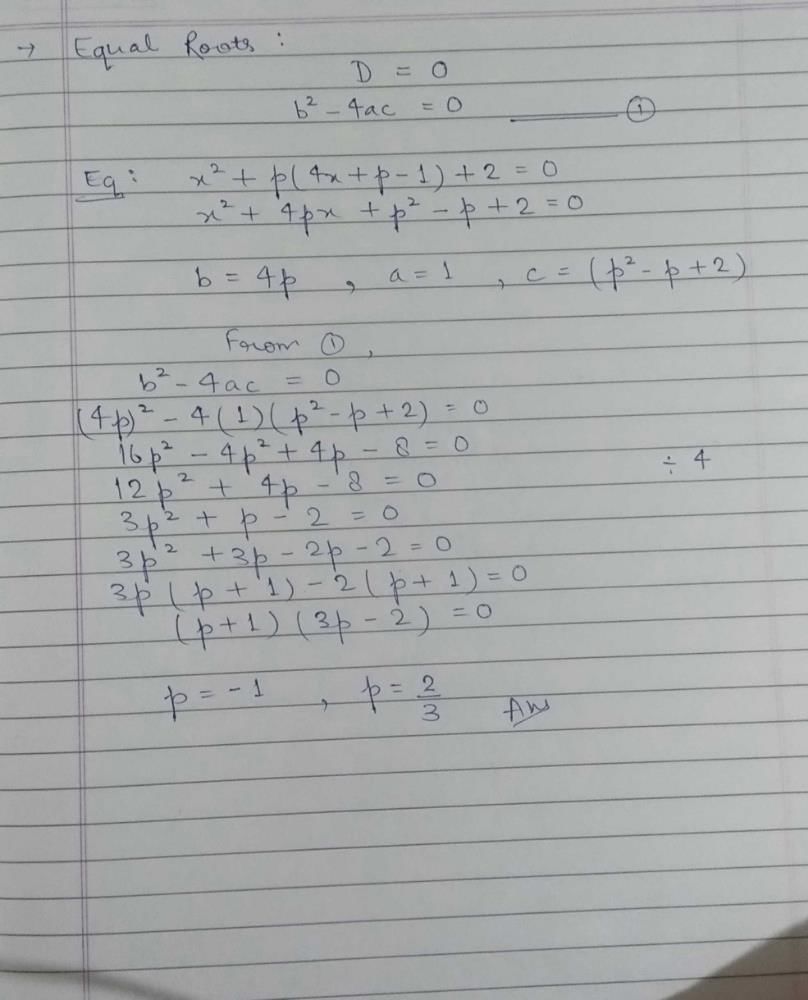 → Equal Roots :
D = 0
b² - 4ac = 0 ——— ①
Eq : x² + p(4x + p - 1) + 2 = 0
x² + 4px + p² - p + 2 = 0
b = 4p , a = 1 , c = (p² - p + 2)
From ① ,
b² - 4ac = 0
(4p)² - 4(1)(p² - p + 2) = 0
16p² - 4p² + 4p - 8 = 0
12p² + 4p - 8 = 0 ÷ 4
3p² + p - 2 = 0
3p² + 3p - 2p - 2 = 0
3p(p + 1) - 2(p + 1) = 0
(p + 1)(3p - 2) = 0
p = -1 , p = 2/3 Ans